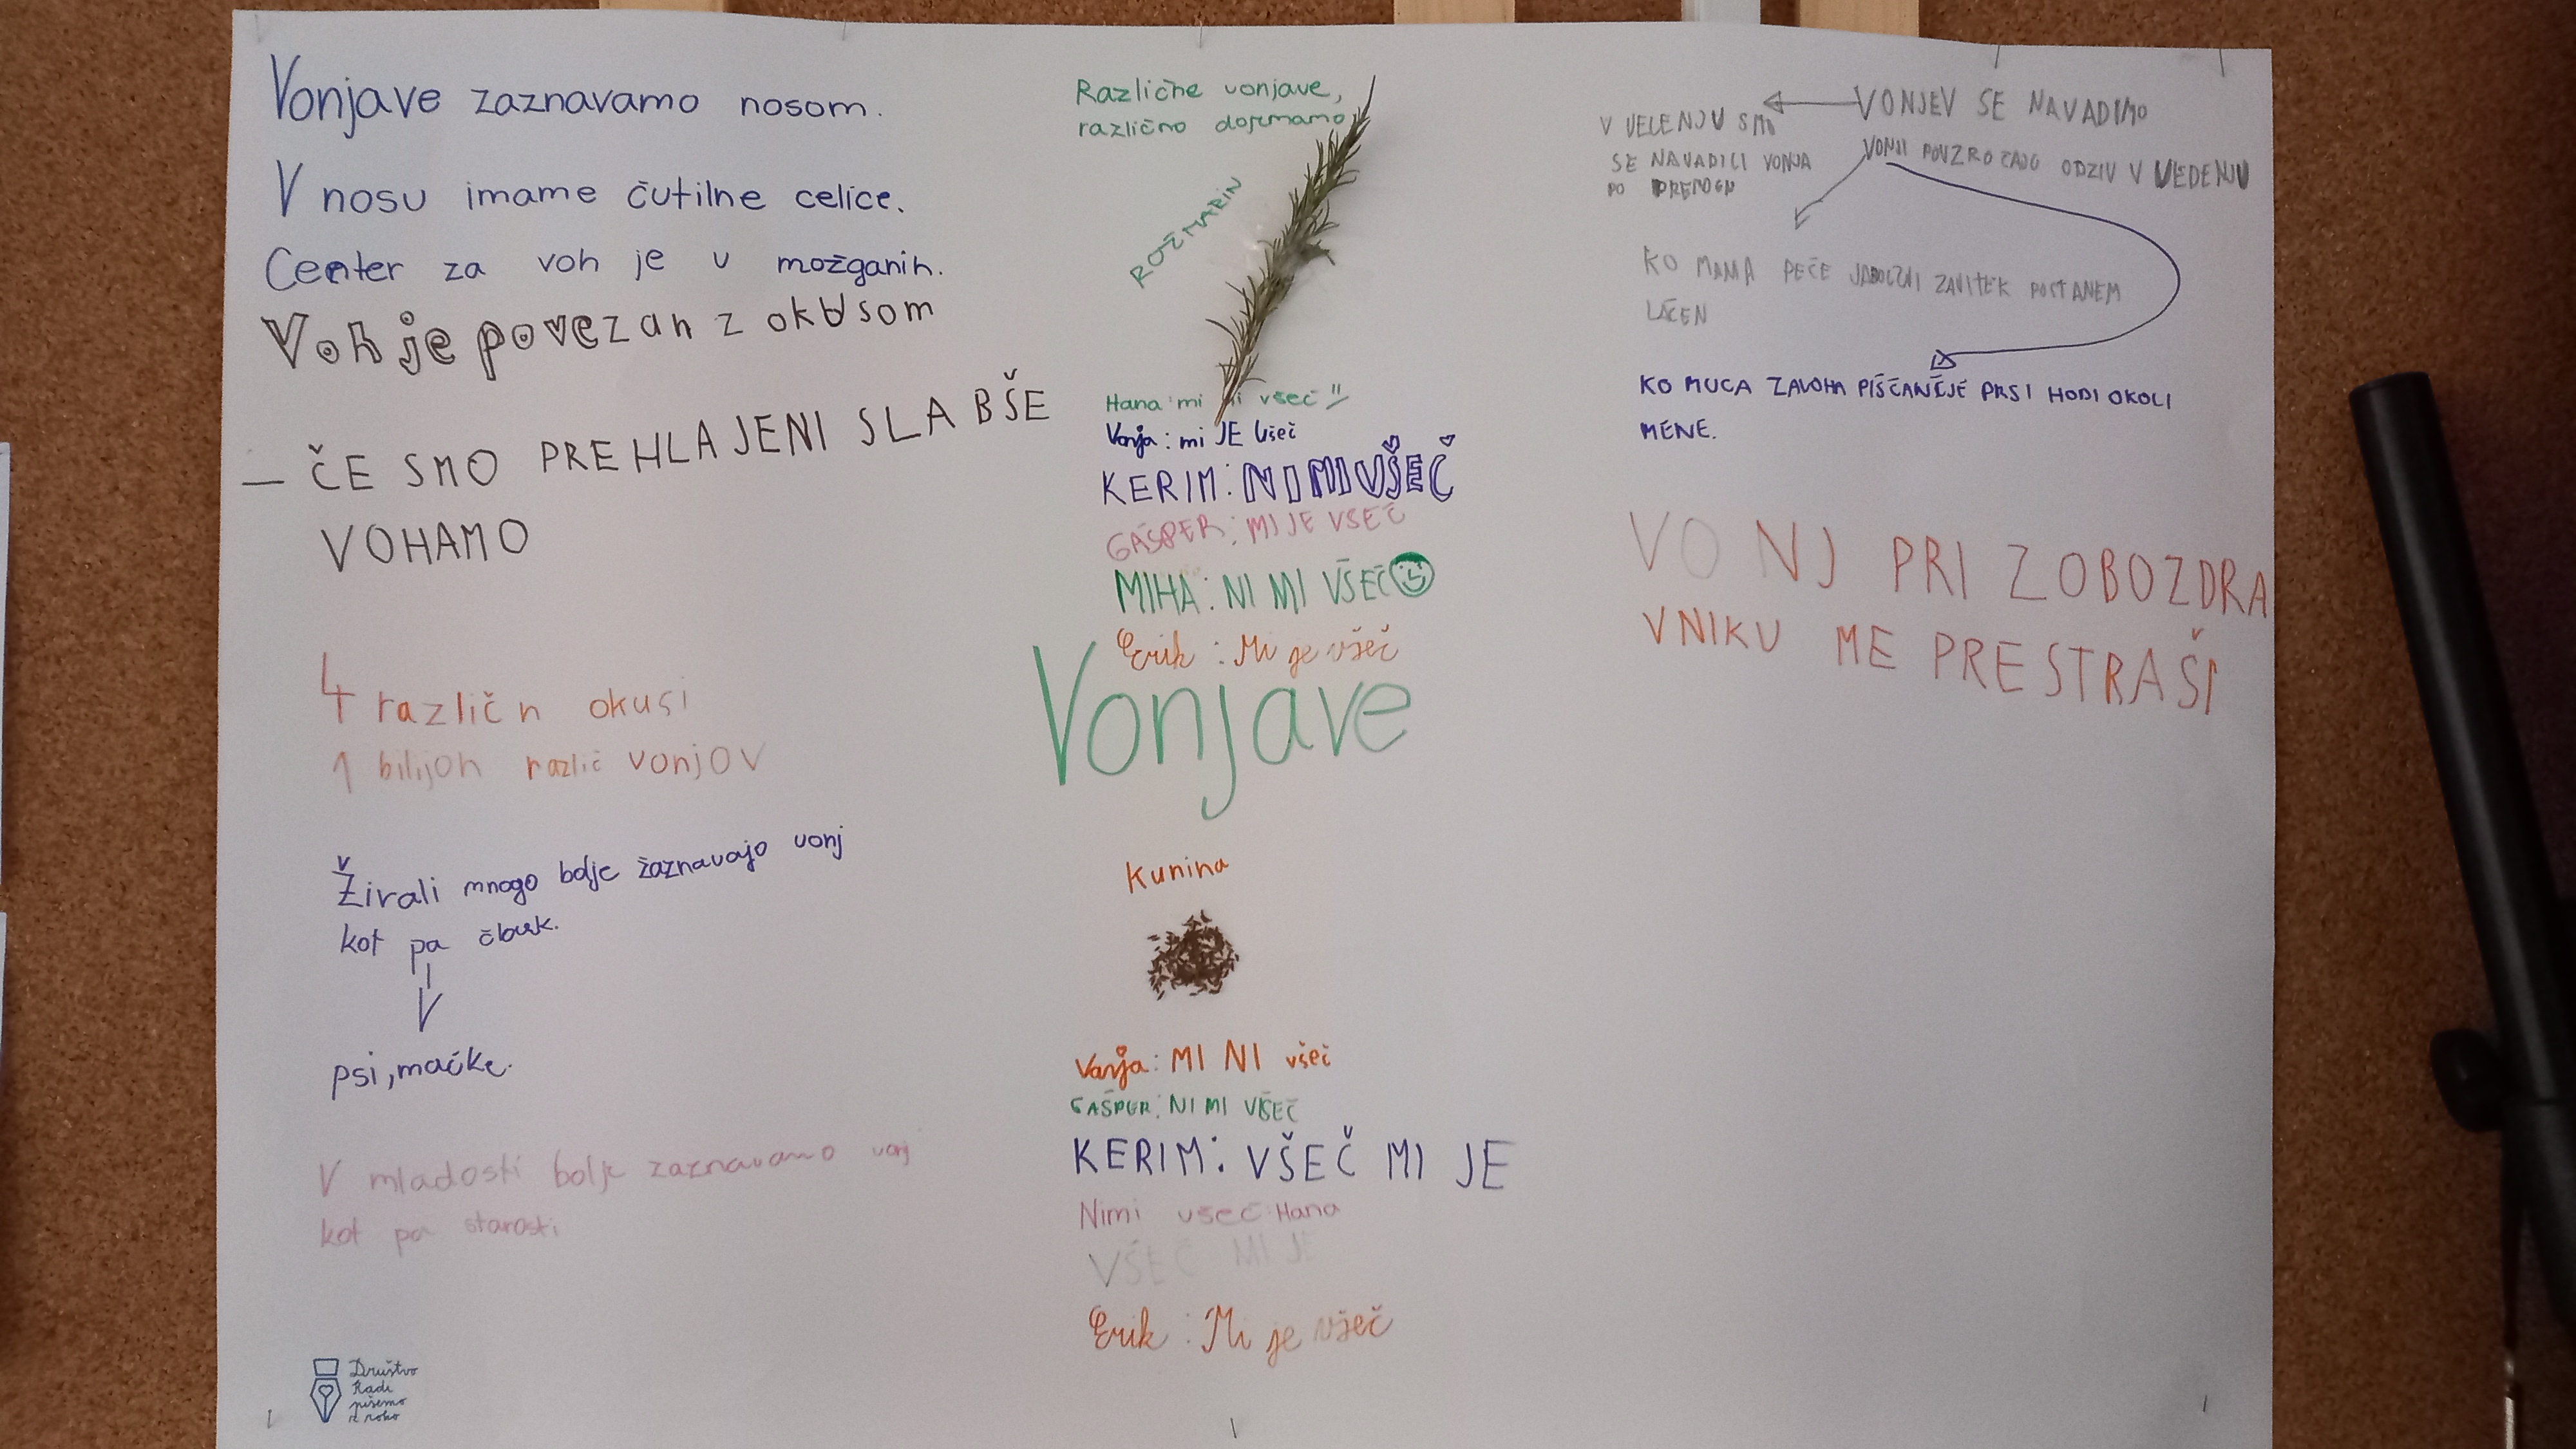 Vonjave zaznavamo nosom.
V nosu imame čutilne celice.
Center za voh je v možganih.
Voh je povezan z okusom
– ČE SMO PREHLAJENI SLABŠE
VOHAMO
4 različn okusi
1 bilijon različ vonjov
Živali mnogo bolje žaznavajo vonj
kot pa človk.
psi, mačke.
V mladosti bolje zaznavamo vonj
kot pa starosti
Društvo
Radi
pišemo
z roko
Različne vonjave,
različno dojemamo
ROŽMARIN
Hana: mi ni všeč!!
Vanja: mi JE všeč
KERIM: NI MI VŠEČ
GAŠPER: MI JE VŠEČ
MIHA: NI MI VŠEČ
Erik: Mi je všeč
Vonjave
Kunina
Vanja: MI NI všeč
GAŠPER: NI MI VŠEČ
KERIM: VŠEČ MI JE
Nimi všeč Hana
VŠEČ MI JE
Erik: Mi je všeč
VONJEV SE NAVADIMO
V VELENJU SMO
SE NAVADILI VONJA
PO PREMOGU
VONJI POVZROČAJO ODZIV V VEDENJU
KO MAMA PEČE JABOLČNI ZAVITEK POSTANEM
LAČEN
KO MUCA ZAVOHA PIŠČANČJE PRSI HODI OKOLI
MENE.
VONJ PRI ZOBOZDRA
VNIKU ME PRESTRAŠI